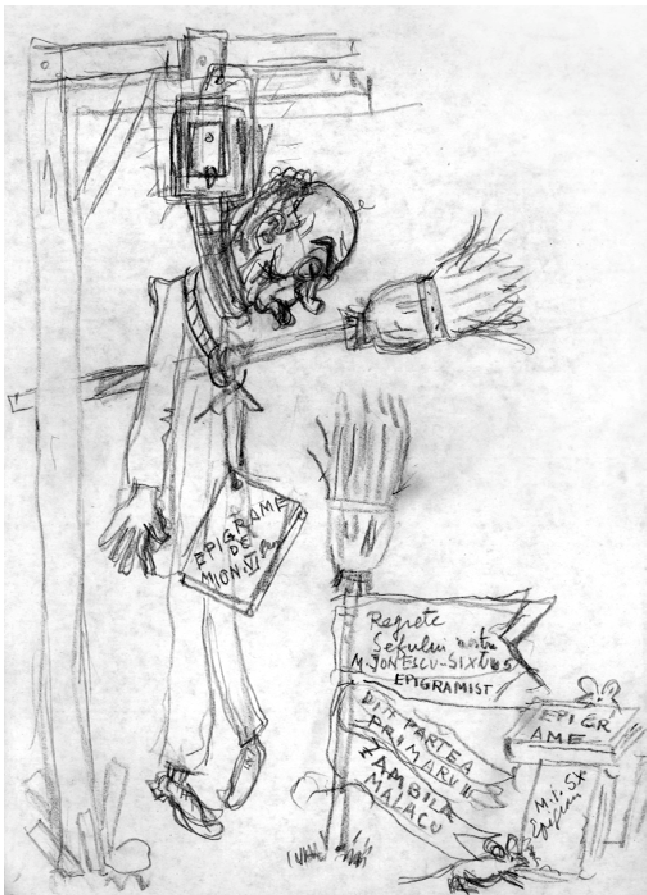 EPIGRAME
DE
MION.VI
Regrete
Șefului nostru
M. IONESCU-SIXTUS
EPIGRAMIST
DIN PARTEA
PRIMARULUI
ZAMBILĂ
MALACU
EPIGR
AME
M.I. SX